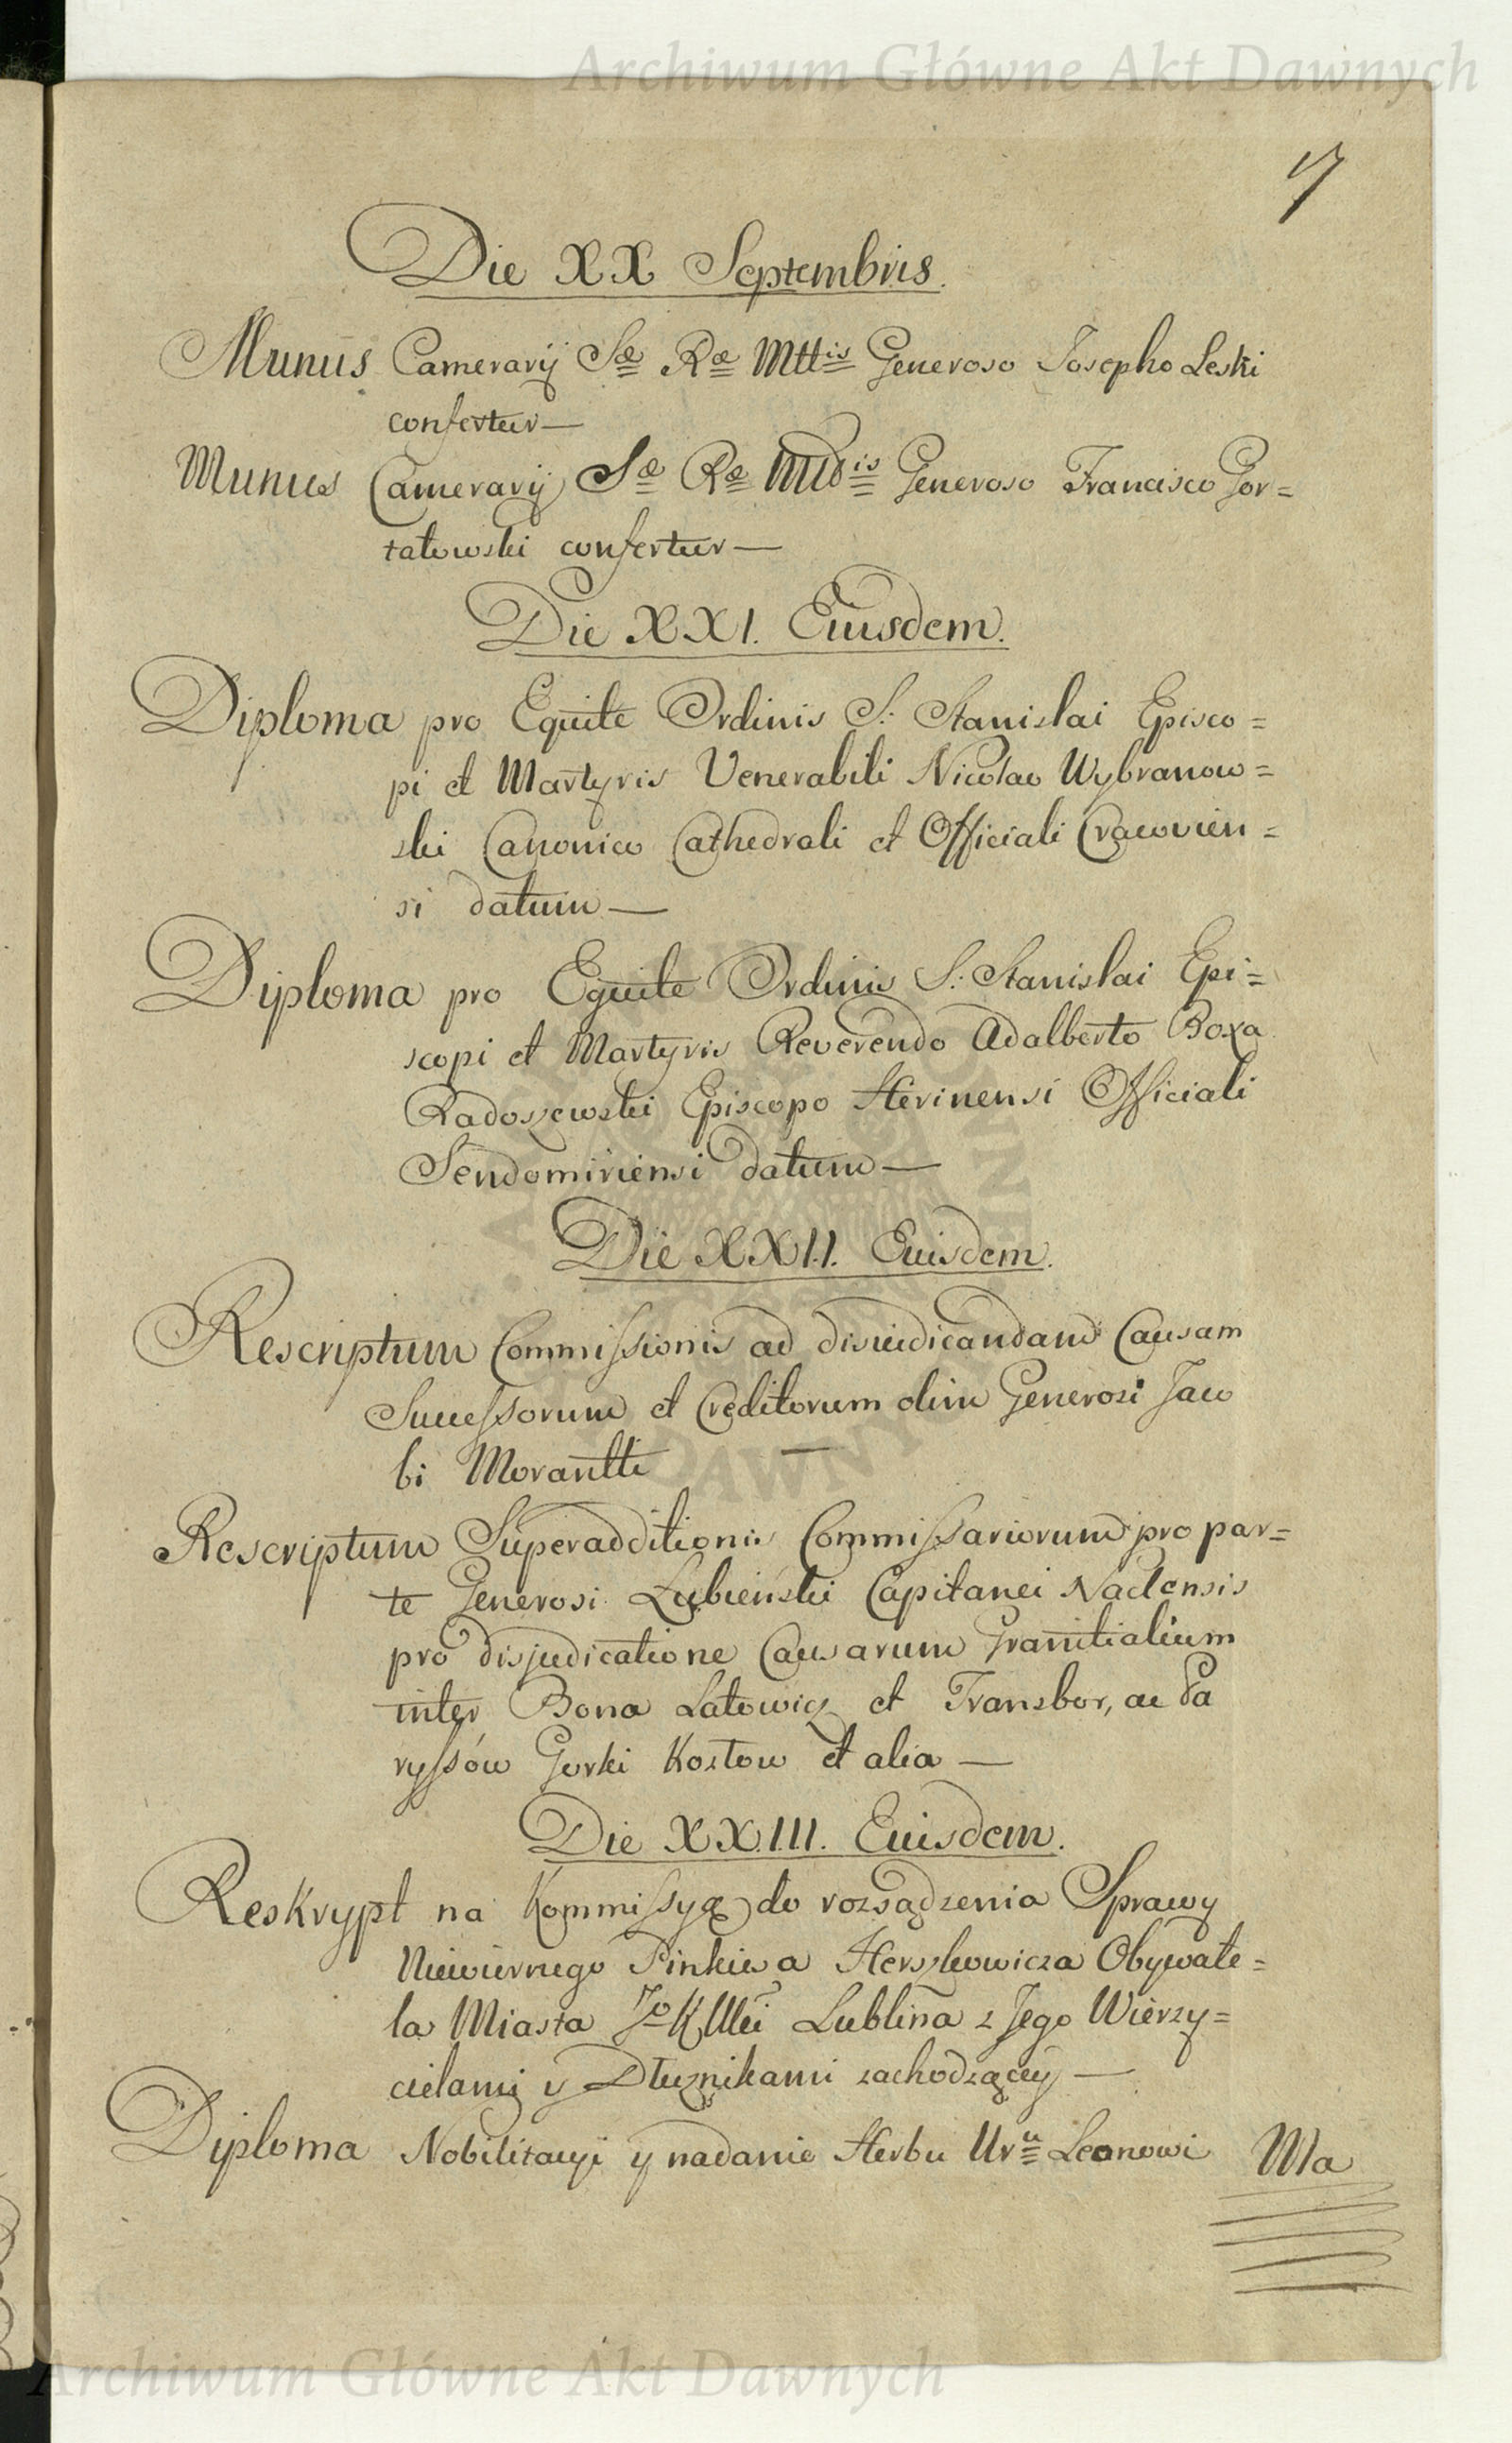 Archiwum Główne Akt Dawnych
17
Die XX Septembris.
Munus Camerarij Sæ Ræ Mttis Generoso Josepho Leski
confertur —
Munus Camerarij Sæ Ræ Mttis Generoso Francisco Gor=
tatowski confertur —
Die XXI. Eiusdem.
Diploma pro Equite Ordinis S: Stanislai Episco=
pi et Martyris Venerabili Nicolao Wybranow=
ski Canonico Cathedrali et Officiali Cracovien=
si datum —
Diploma pro Equite Ordinis S: Stanislai Epi=
scopi et Martyris Reverendo Adalberto Boxa
Radoszewski Episcopo Herinensi Officiali
Sendomiriensi datum —
Die XXII. Eiusdem.
Rescriptum Commissionis ad disiudicandam Causam
Successorum et Creditorum olim Generosi Jaco
bi Morantti —
Rescriptum Superadditionis Commissariorum pro par=
te Generosi Łubieński Capitanei Naclensis
pro disjudicatione Causarum Granitialium
inter Bona Latowicz et Transbor, ac Pa
ryssów Gorki Kostow et alia —
Die XXIII. Eiusdem.
Reskrypt na Kommissyą do rozsądzenia Sprawy
Niewiernego Pinkiesa Herszkowicza Obywate=
la Miasta Jo K Mci Lublina z Jego Wierzy=
cielami y Dłuznikami zachodzącey —
Diploma Nobilitacyi y nadanie Herbu Uru Leonowi
Ma
Archiwum Główne Akt Dawnych